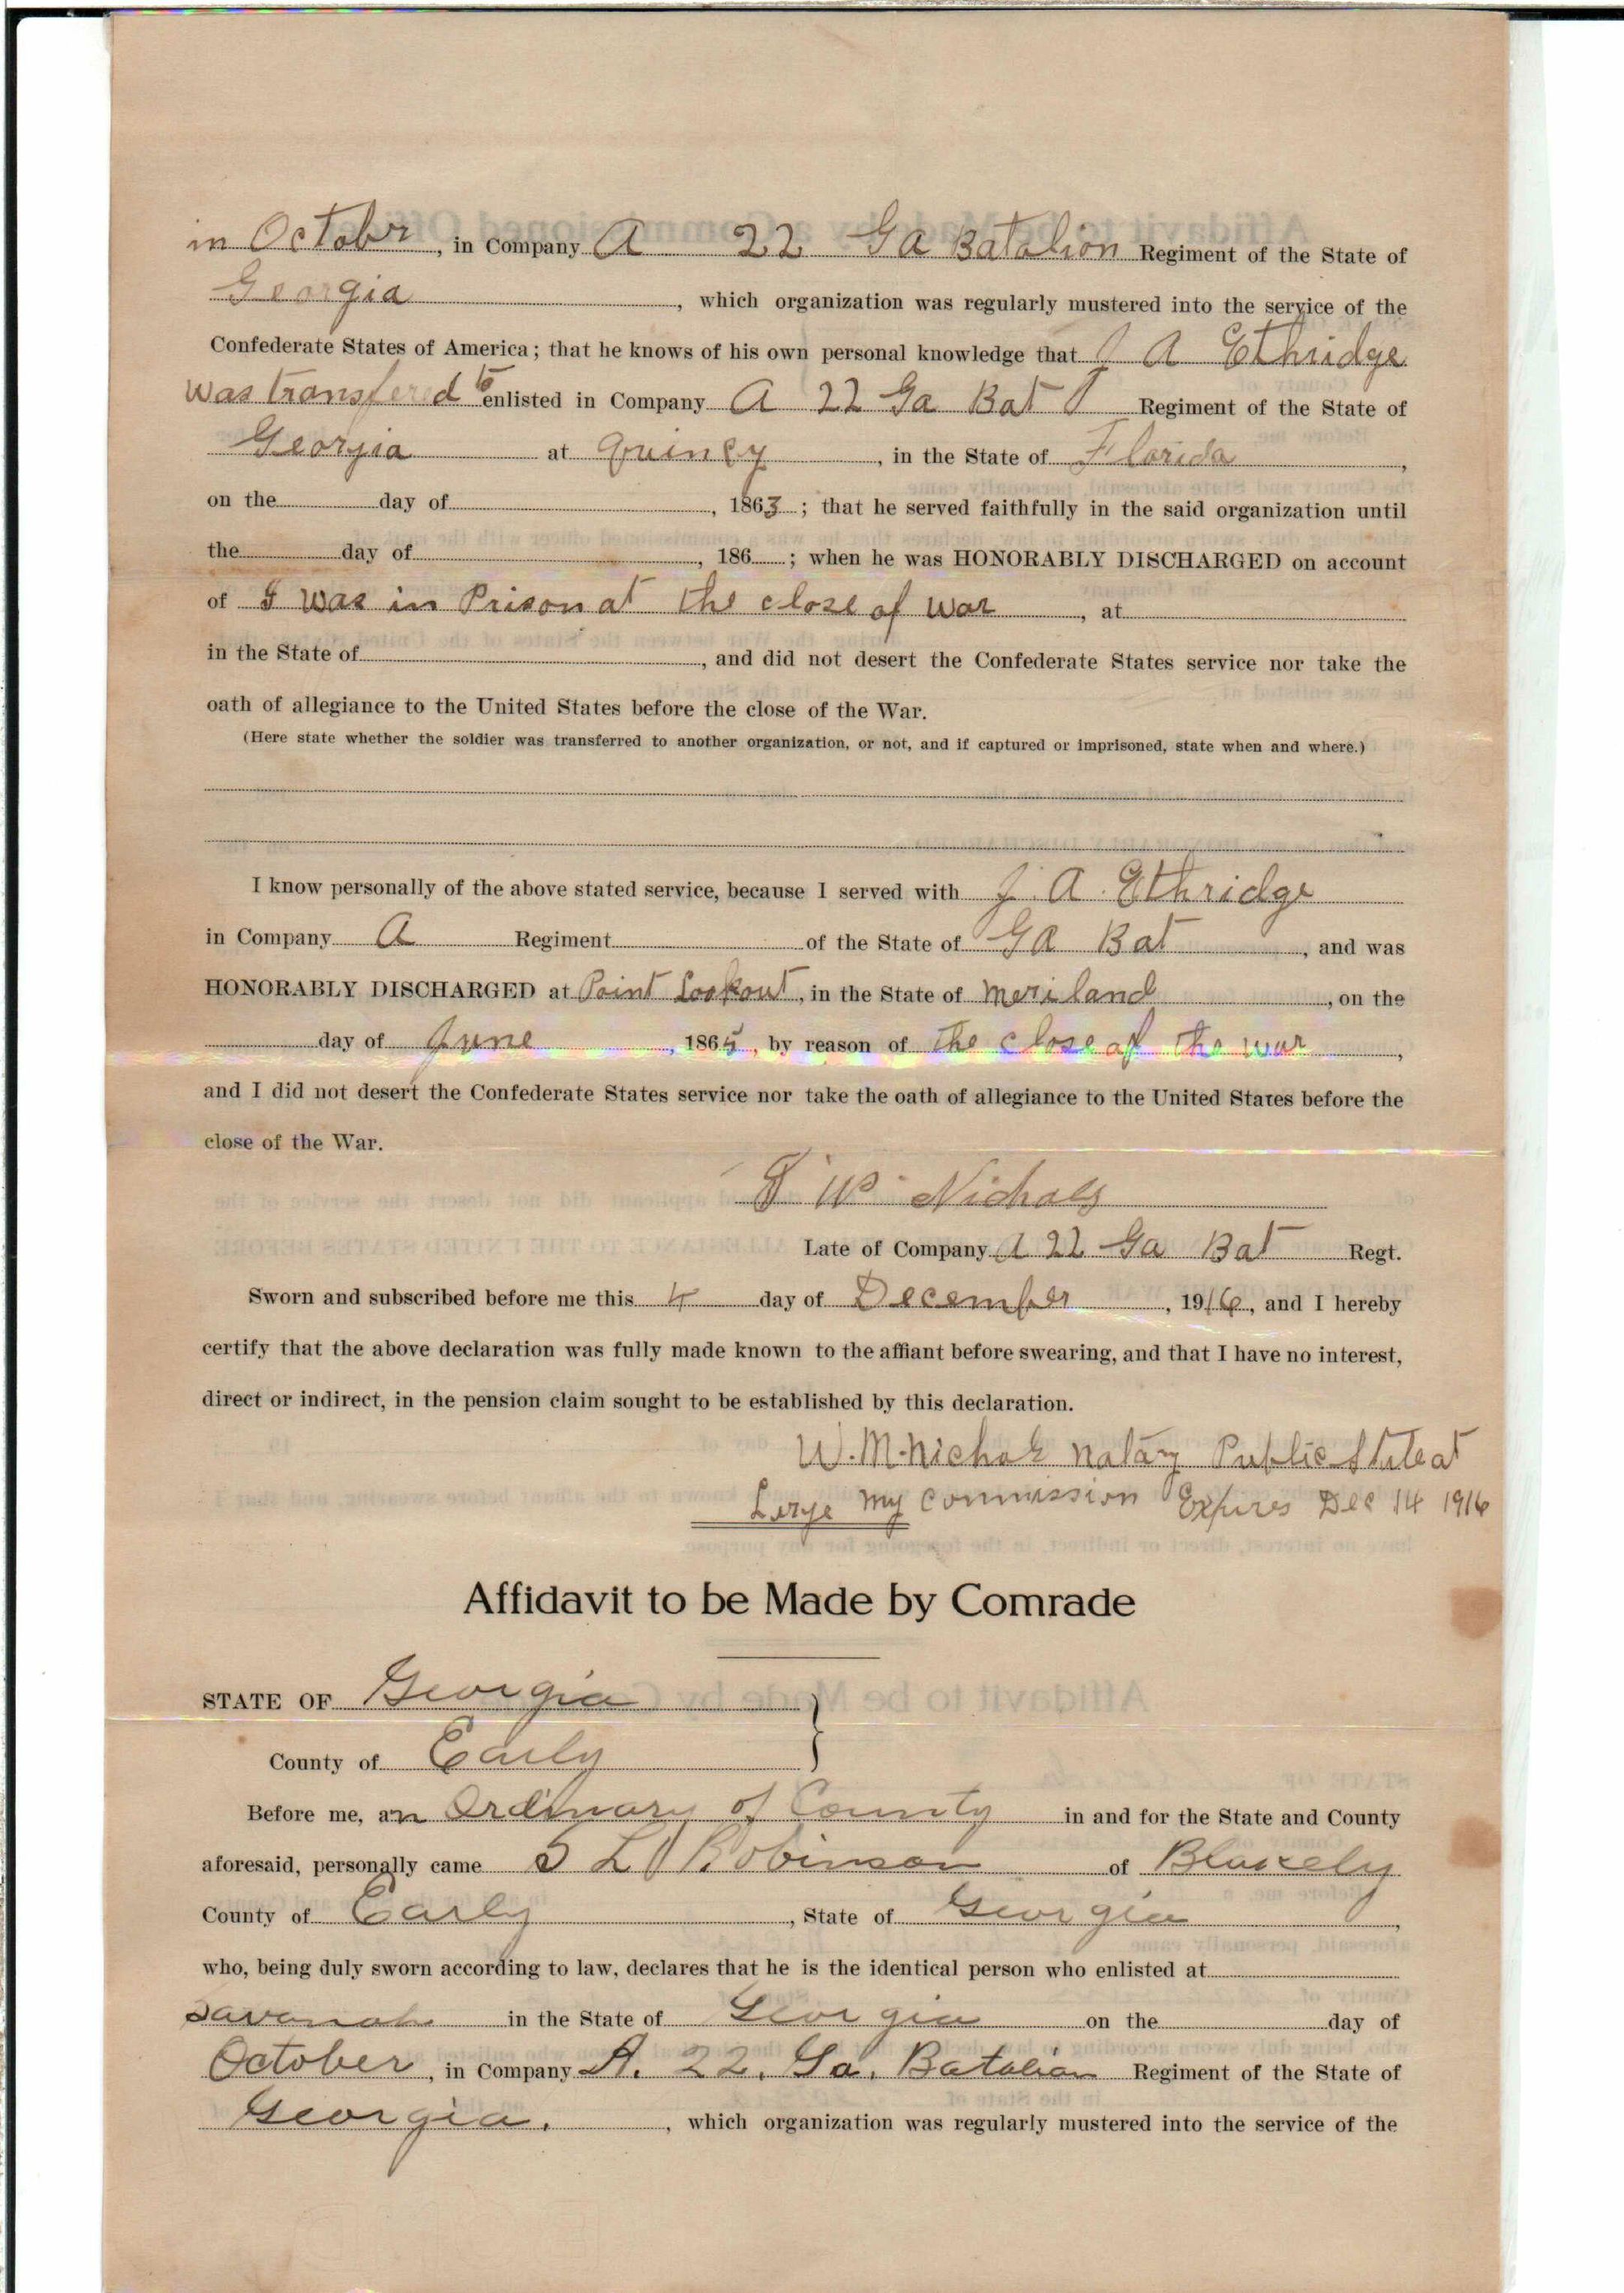 in Octobr, in Company A 22 Ga Batalion Regiment of the State of
Georgia, which organization was regularly mustered into the service of the
Confederate States of America; that he knows of his own personal knowledge that J A Ethridge
was transfered to enlisted in Company A 22 Ga Bat Regiment of the State of
Georgia at Quincy, in the State of Florida,
on the day of, 1863; that he served faithfully in the said organization until
the day of, 186; when he was HONORABLY DISCHARGED on account
of I was in Prison at the close of war, at
in the State of, and did not desert the Confederate States service nor take the
oath of allegiance to the United States before the close of the War.
(Here state whether the soldier was transferred to another organization, or not, and if captured or imprisoned, state when and where.)
I know personally of the above stated service, because I served with J. A. Ethridge
in Company A Regiment of the State of GA Bat, and was
HONORABLY DISCHARGED at Point Lookout, in the State of meriland, on the
day of June, 1865, by reason of the close of the war,
and I did not desert the Confederate States service nor take the oath of allegiance to the United States before the
close of the War.
W Nichols
Late of Company A 22 Ga Bat Regt.
Sworn and subscribed before me this 4 day of December, 1916, and I hereby
certify that the above declaration was fully made known to the affiant before swearing, and that I have no interest,
direct or indirect, in the pension claim sought to be established by this declaration.
W. M. Nichols Notary Public State at
Large My Commission Expires Dec 14 1916
Affidavit to be Made by Comrade
STATE OF Georgia
County of Early
Before me, an Ordinary of County in and for the State and County
aforesaid, personally came S L Robinson of Blakely
County of Early, State of Georgia,
who, being duly sworn according to law, declares that he is the identical person who enlisted at
Savanah in the State of Georgia on the day of
October, in Company A. 22. Ga. Batalian Regiment of the State of
Georgia., which organization was regularly mustered into the service of the